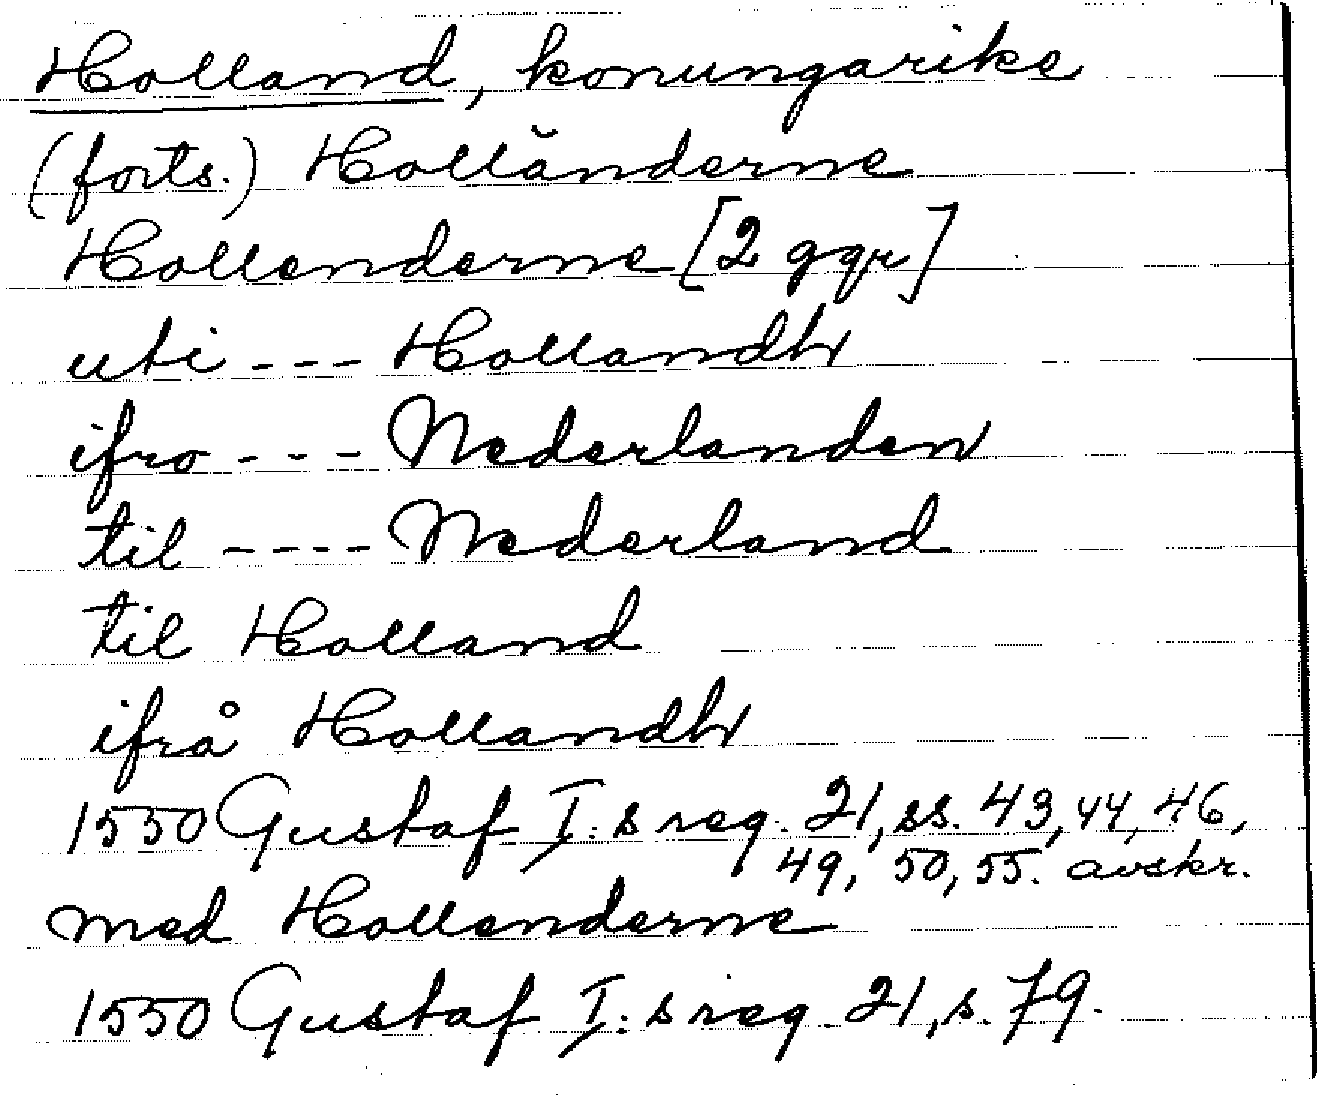 Holland, konungarike
(forts.) Holländerne
Hollenderne [2 ggr]
uti --- Hollandh
ifro --- Nederlanden
til ---- Nederland
til Holland
ifrå Hollandh
1550 Gustaf I:s reg. 21, ss. 43, 44, 46,
49, 50, 55. avskr.
med Hollenderne
1550 Gustaf I:s reg. 21, s. 79.